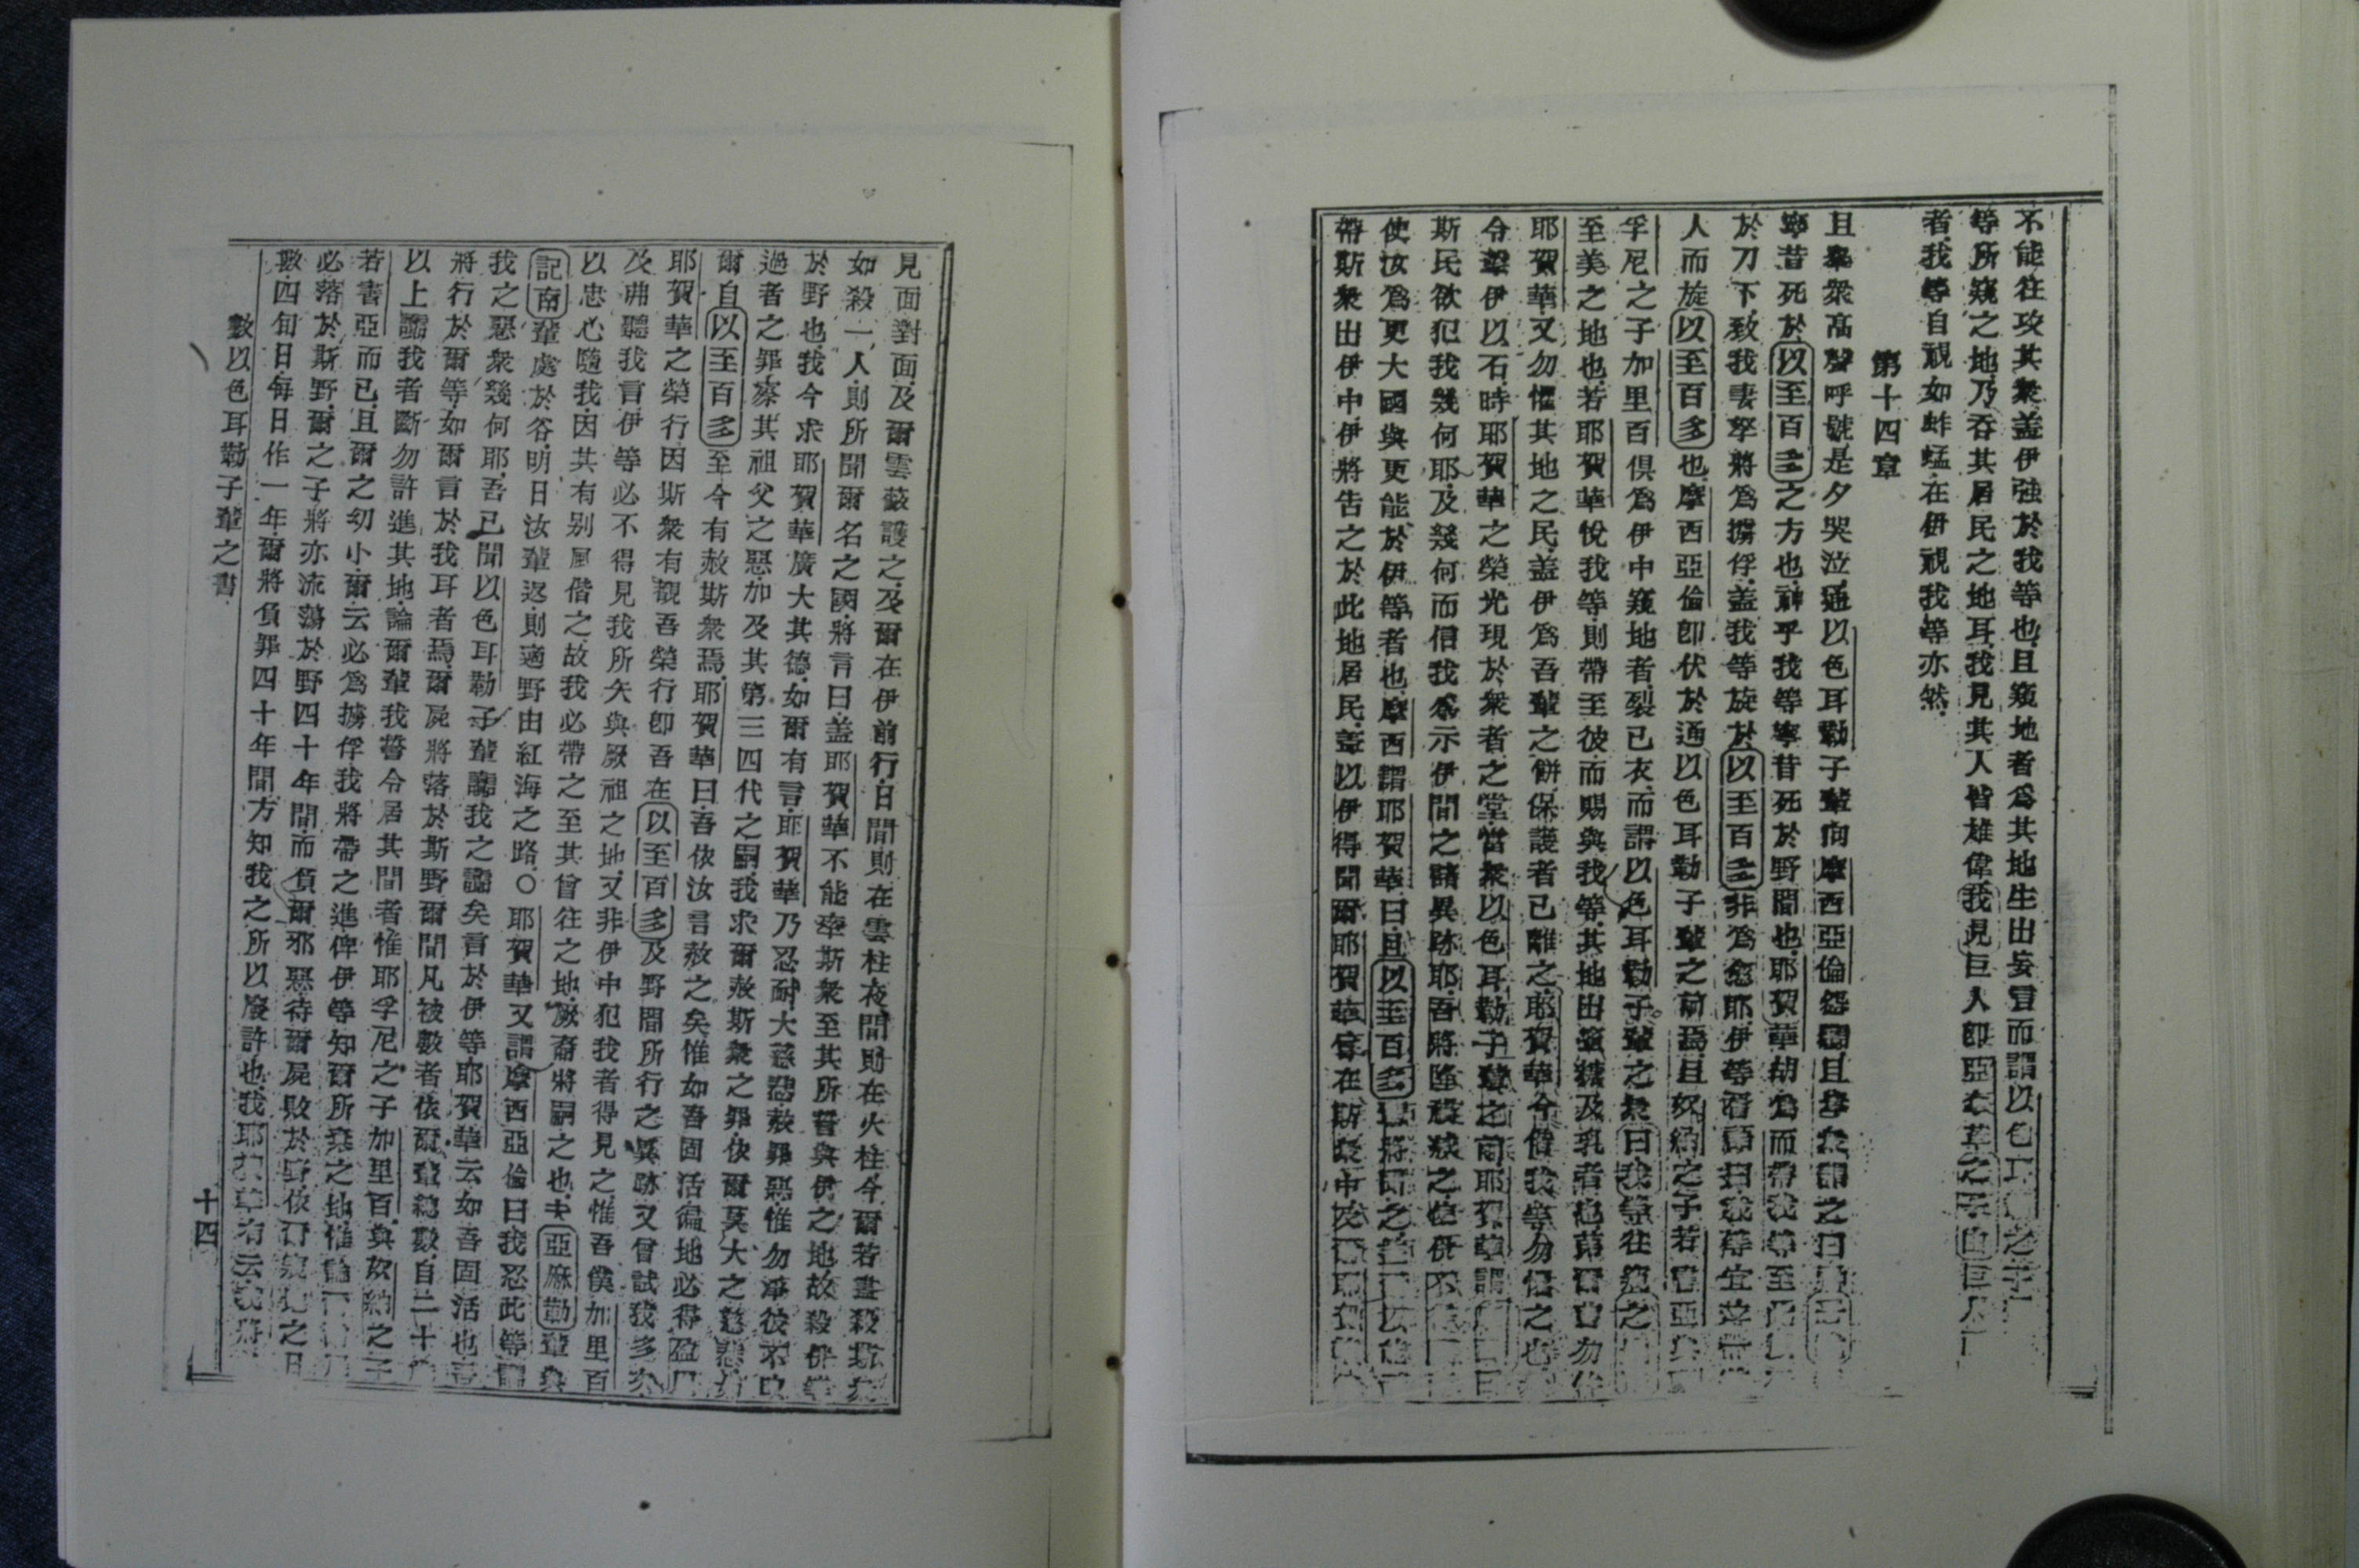 不能往攻其衆蓋伊強於我等也且窺地者爲其地生出妄冒而謂以色耳勒之子
等所窺之地乃吞其居民之地耳我見其人皆雄偉我見巨人即亞
者我等自視如蚱蜢在伊視我等亦然
第十四章
且舉衆高聲呼號是夕哭泣通以色耳勒子輩向摩西亞倫怨
寧昔死於以至百多之方也神乎我等寧昔死於野間也耶賀華胡爲而帶我等至
於刀下致我妻孥將爲擄俘蓋我等旋於以至百多非爲愈耶伊等
人而旋以至百多也摩西亞倫卽伏於通以色耳勒子輩之前焉且奴納之子若書亞
孚尼之子加里百俱爲伊中窺地者裂已衣而謂以色耳勒子輩之衆曰我等往窺之
至美之地也若耶賀華悅我等則帶至彼而賜與我等其地出蜜糖及乳者也第爾曹勿
耶賀華又勿懼其地之民蓋伊爲吾輩之餅保護者已離之耶賀華今偕我等勿懼之也
令擊伊以石時耶賀華之榮光現於衆者之堂當衆以色耳勒子輩之前耶賀華謂
斯民欲犯我幾何耶及幾何而信我爲示伊間之諸異跡耶吾將
使汝爲更大國與更能於伊等者也摩西謂耶賀華曰且以至百多
帶斯衆出伊中伊將告之於此地居民蓋以伊得聞爾耶賀華曾在斯衆中
見面對面及爾雲蔽護之及爾在伊前行日間則在雲柱夜間則在火柱今爾若盡殺斯
如殺一人則所聞爾名之國將言曰蓋耶賀華不能牽斯衆至其所誓與伊之地故殺伊等
於野也我今求耶賀華廣大其德如爾有言耶賀華乃忍耐大慈悲赦罪惡惟勿淨彼不
過者之罪察其祖父之惡加及其第三四代之嗣我求爾赦斯衆之罪依爾莫大之慈悲
爾自以至百多至今有赦斯衆焉耶賀華曰吾依汝言赦之矣惟如吾固活徧地必得盈
耶賀華之榮行因斯衆有觀吾榮行卽吾在以至百多及野間所行之異跡又曾試我多次
及弗聽我言伊等必不得見我所矢與厥祖之地又非伊中犯我者得見之惟吾僕加里百
以忠心隨我因其有別風偕之故我必帶之至其曾往之地厥裔將嗣之也夫亞麻勒輩與
記南輩處於谷明日汝輩返則適野由紅海之路〇耶賀華又謂摩西亞倫曰我忍此等
我之惡衆幾何耶吾已聞以色耳勒子輩譸我之譸矣言於伊等耶賀華云如吾固活也
將行於爾等如爾言於我耳者焉爾屍將落於斯野爾間凡被數者依爾輩總數自二十
以上譸我者斷勿許進其地論爾輩我誓令居其間者惟耶孚尼之子加里百與奴納之子
若書亞而已且爾之幼小爾云必爲擄俘我將帶之進俾伊等知爾所棄之地惟
必落於斯野爾之子將亦流蕩於野四十年間而負爾邪惡待爾屍敗於野依
數四旬日每日作一年爾將負罪四十年間方知我之所以廢許也我耶賀華有云
數以色耳勒子輩之書
十四